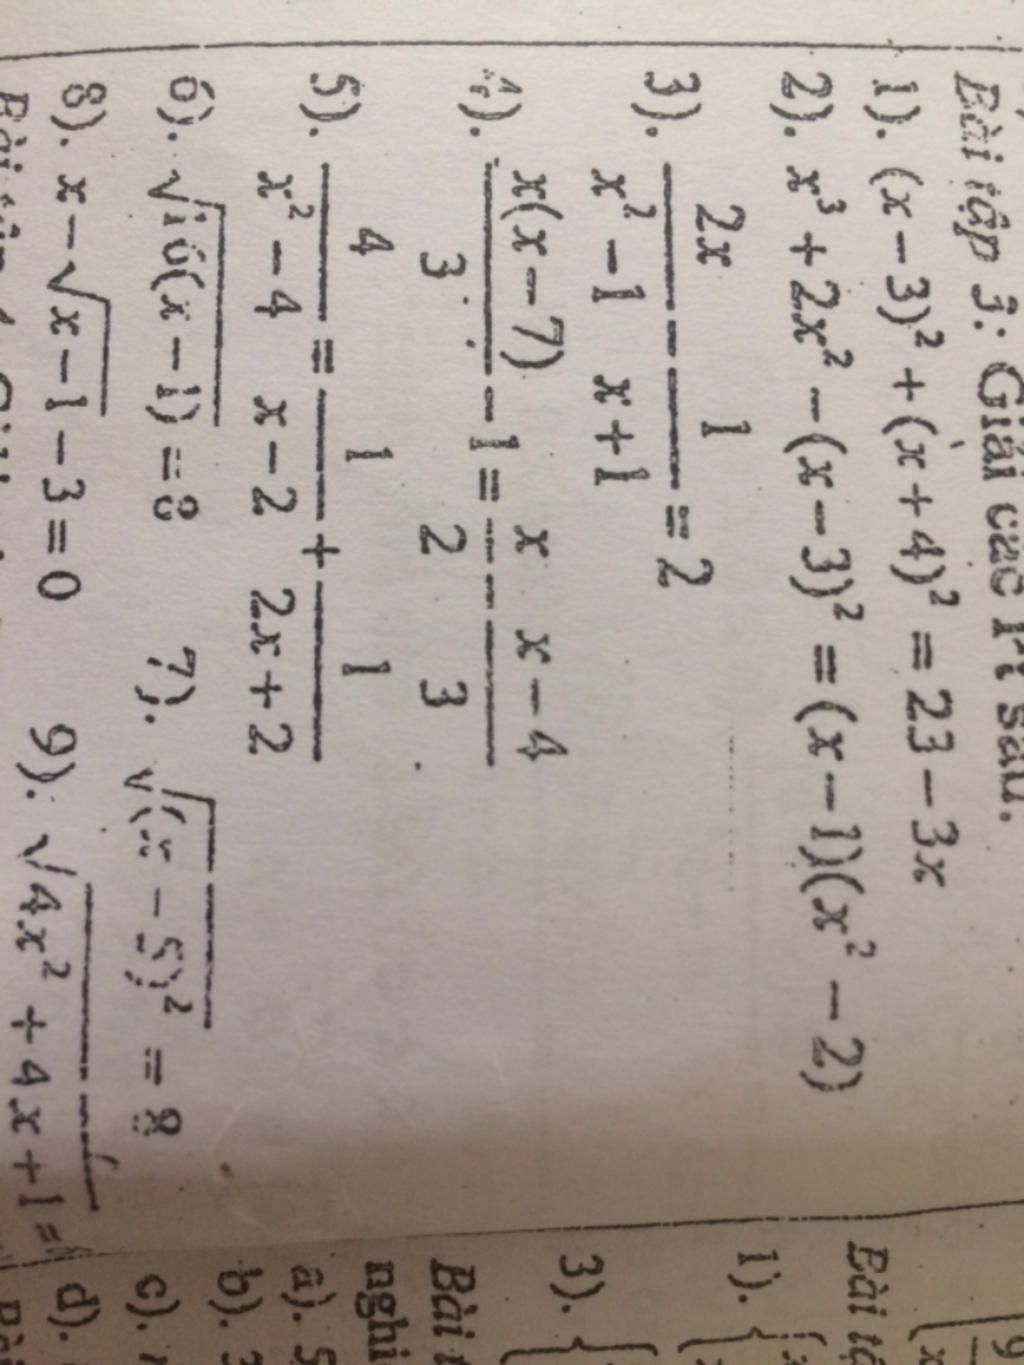 Bài tập 3: Giải các PT sau.
1). (x − 3)² + (x + 4)² = 23 − 3x
2). x³ + 2x² − (x − 3)² = (x − 1)(x² − 2)
3). 2x / (x² − 1) − 1 / (x + 1) = 2
4). x(x − 7) / 3 − 1 = x / 2 − (x − 4) / 3
5). 4 / (x² − 4) = 1 / (x − 2) + 1 / (2x + 2)
6). √16(x − 1) = 8 7). √(x − 5)² = 8
8). x − √x − 1 − 3 = 0 9). √4x² + 4x + 1 =
Bài
1). {
3). {
Bài
nghi
a). 5
b).
c).
d).